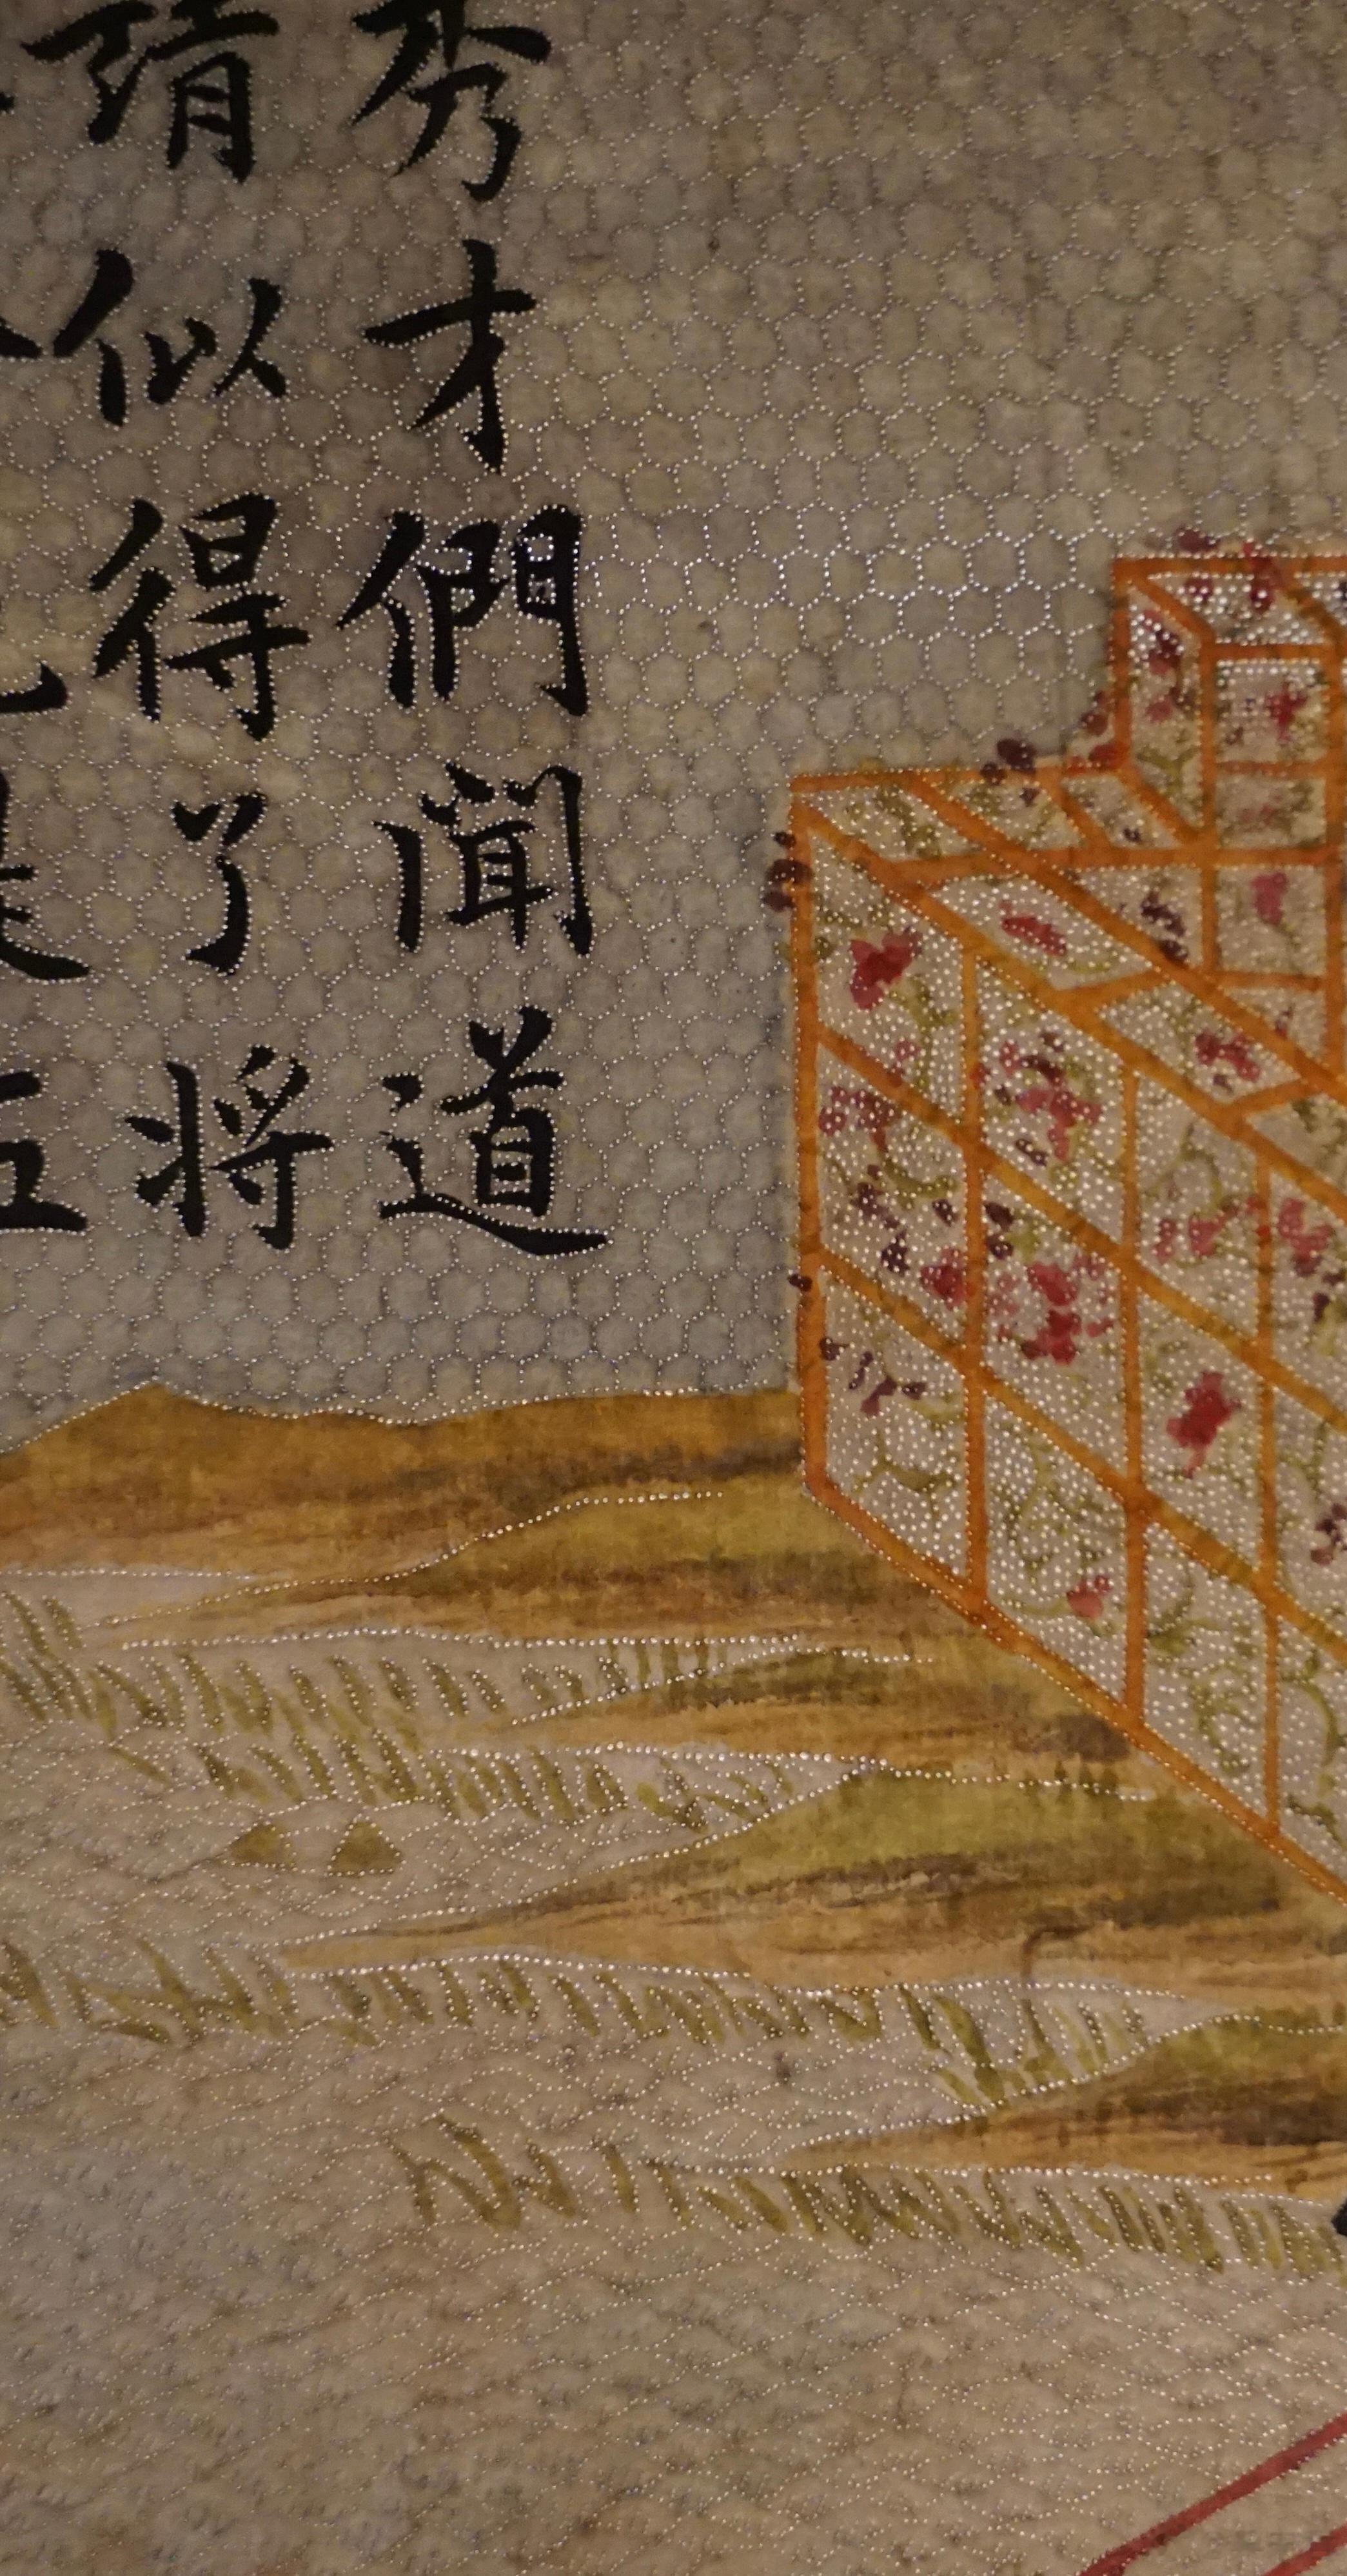 秀才們聞道
請似得了将